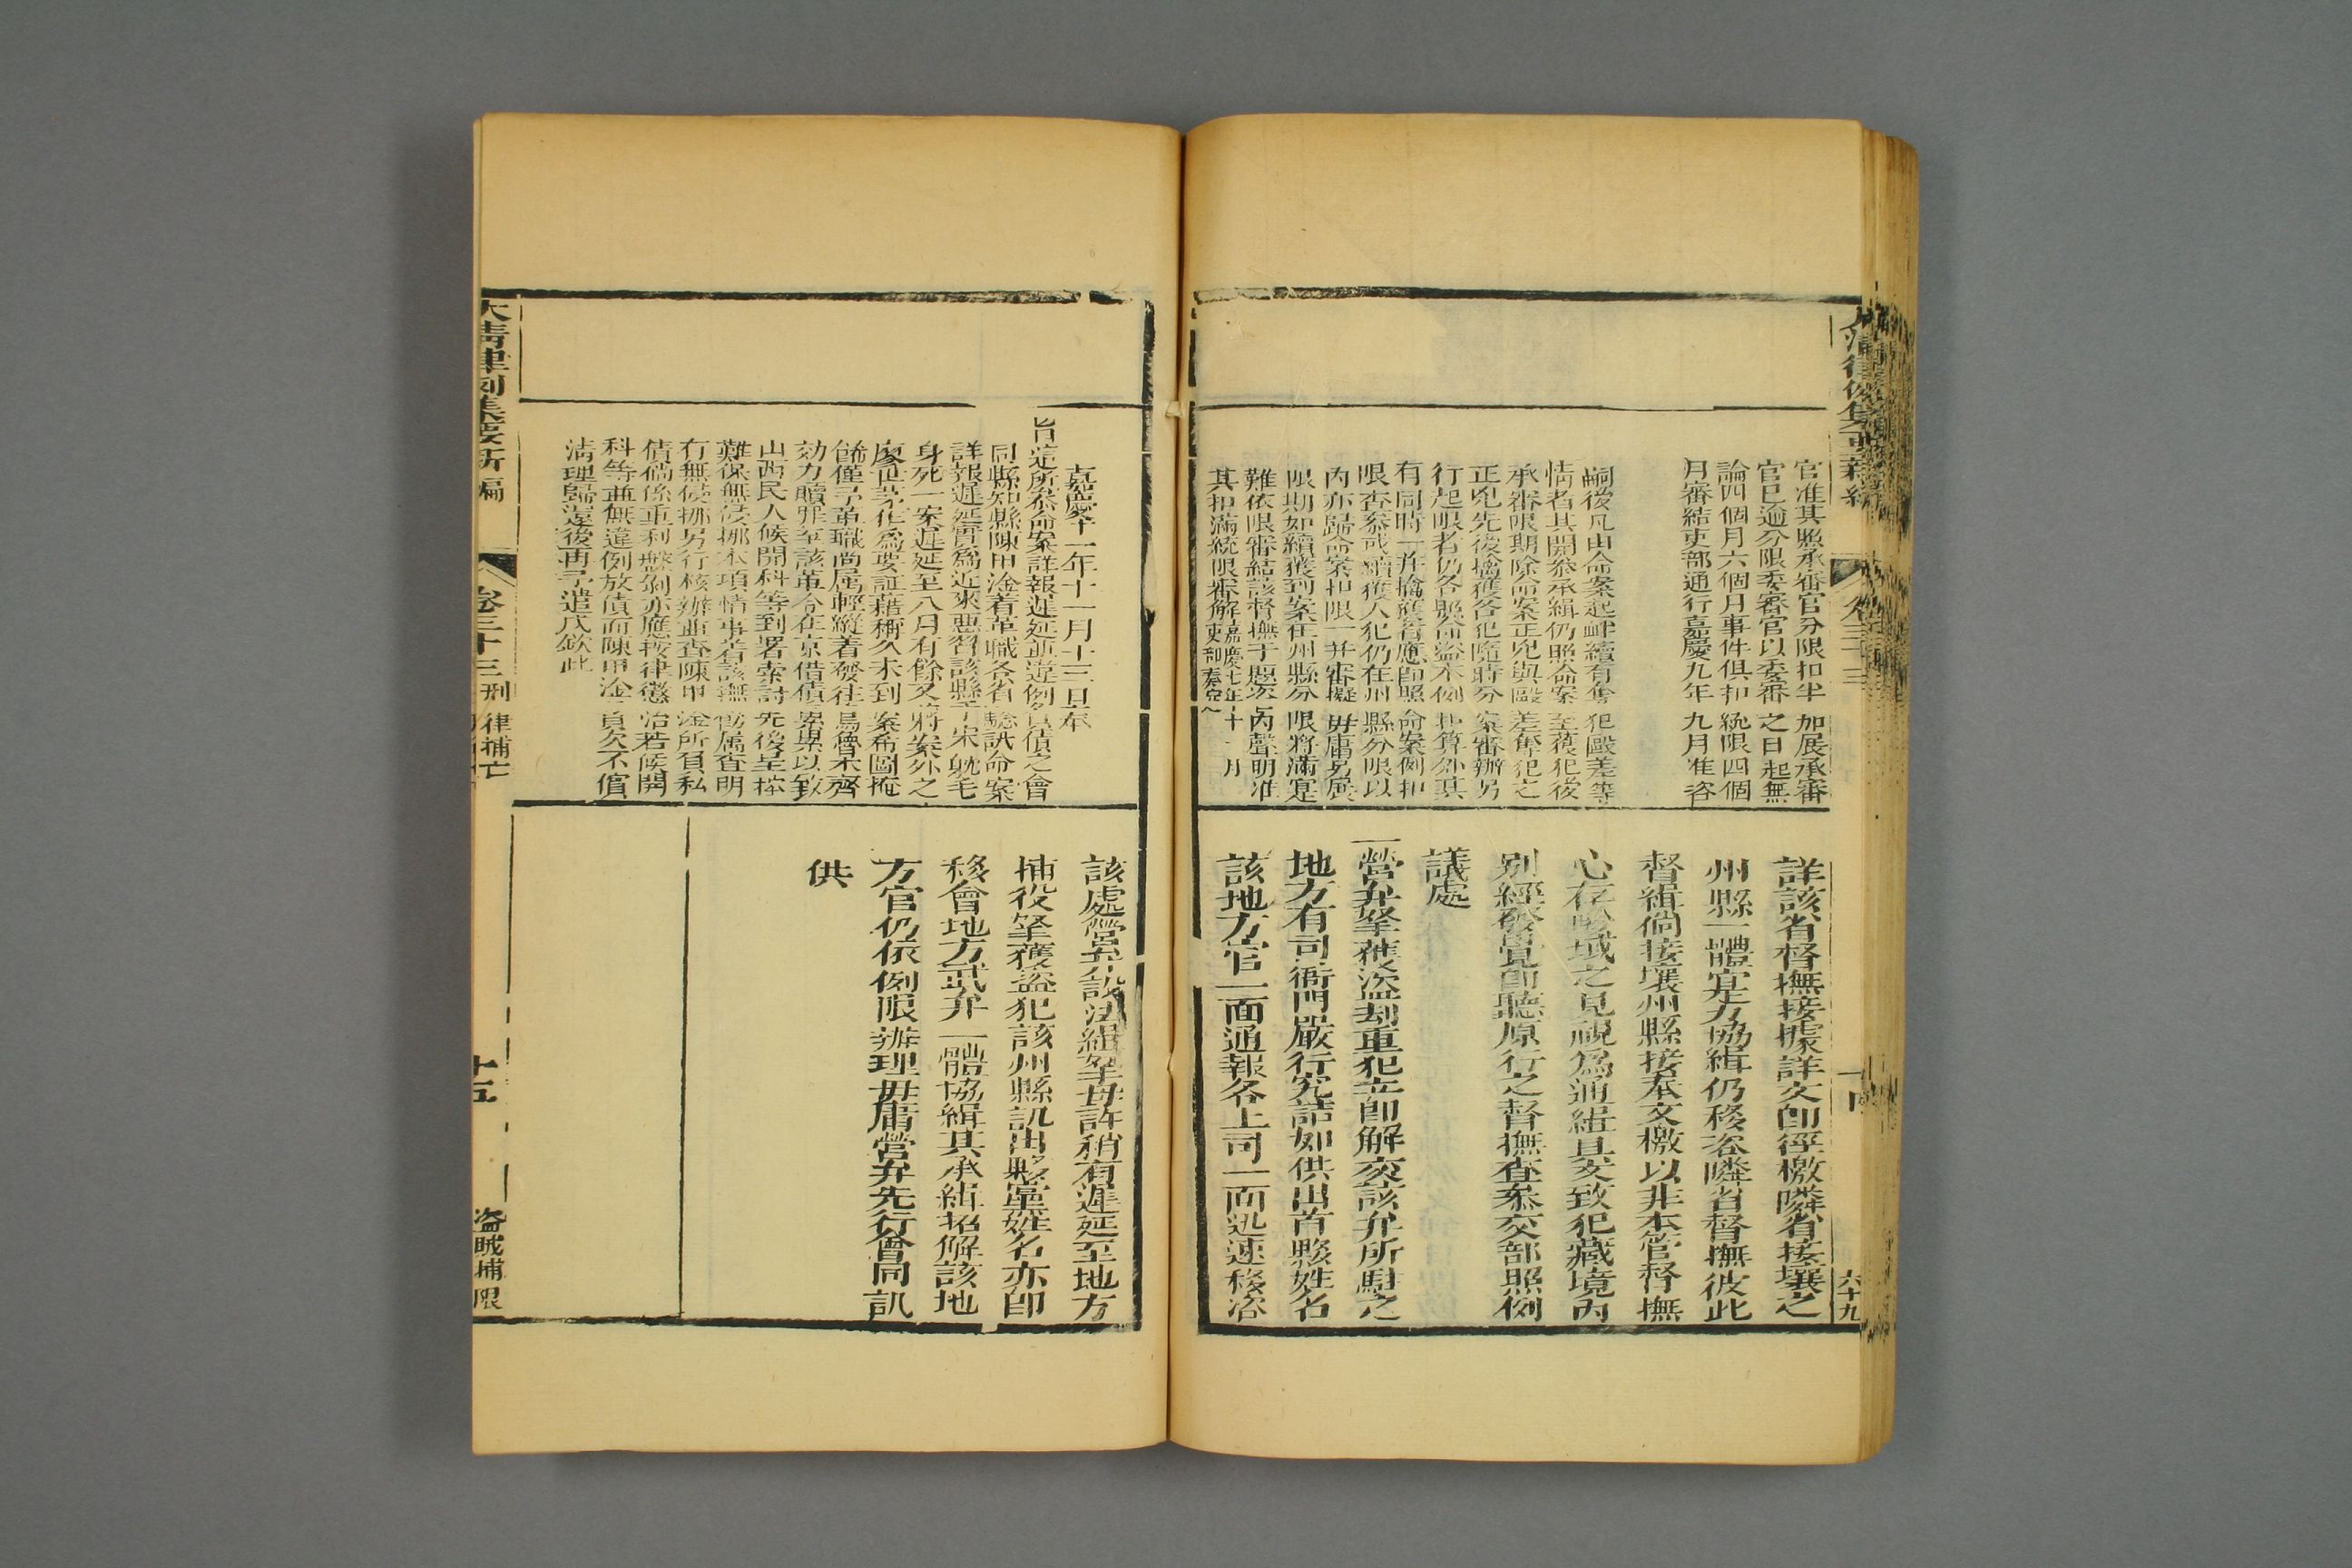 官准其照承審官分限扣半加展承審
官已逾分限委審官以委審之日起無
論四個月六個月事件俱扣統限四個
月審結吏部通行嘉慶九年九月准咨
嗣後凡由命案起衅續有奪犯毆差等
情者其開叅承緝仍照命案至獲犯後
承審限期除命案正兇與毆差奪犯之
正兇先後擒獲各犯隨時分案審辦另
行起限者仍各照命盜本例扣算外其
有同時一并擒獲者應卽照命案例扣
限查叅或續獲人犯仍在州縣分限以
內亦歸命案扣限一并審擬毋庸另展
限期如續獲到案在州縣分限將滿寔
難依限審結該督撫于題咨內聲明准
其扣滿統限審解嘉慶七年十一月吏部奏定
詳該省督撫接據詳文卽徑檄隣省接壤之
州縣一體寔力協緝仍移咨隣省督撫彼此
督緝倘接壤州縣接奉文檄以非本管督撫
心存畛域之見視爲通緝具文致犯藏境內
別經發覺卽聽原行之督撫查叅交部照例
議處
一營弁拏獲盜刼重犯立卽解交該弁所駐之
地方有司衙門嚴行究詰如供出首夥姓名
該地方官一面通報各上司一面迅速移咨
嘉慶十一年十一月十三日奉
旨這所叅命案詳報遲延並違例負債之會
同縣知縣陳甲淦着革職各省驗訊命案
詳報遲延實爲近來惡習該縣于宋觥毛
身死一案遲延至八月有餘又將案外之
廖世茅作爲要証藉稱久未到案希圖掩
飾僅予革職尚屬輕縱着發往烏魯木齊
効力贖罪至該革令在京借債累累以致
山西民人候開科等到署索討先後呈控
難保無侵挪本項情事著該撫飭属查明
有無侵挪另行核辦並查陳甲淦所負私
債倘係重利盤剝亦應按律懲治若候開
科等並無違例放債而陳甲淦負欠不償
淸理歸還後再予遣戍欽此
該處營弁設法緝拏毋許稍有遲延至地方
捕役拏獲盜犯該州縣訊出夥黨姓名亦卽
移會地方武弁一體協緝其承緝招解該地
方官仍依例限辦理毋庸營弁先行會同訊
供
大淸律例集要新編
卷三十三
刑律捕亡
十五
盜賊捕限
六十九